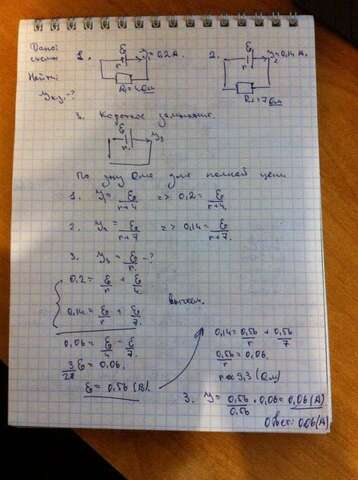 Дано: 1. ℰ r I₁=0,2А. 2. ℰ r I₂=0,14А.
схемы
Найти: R₁=4Ом R₂=7Ом
Iкз-?
3. Короткое замыкание.
ℰ r I₃
По зну Ома для полной цепи
1. I₁=ℰ/(r+4) => 0,2=ℰ/(r+4)
2. I₂=ℰ/(r+7) => 0,14=ℰ/(r+7).
3. I₃=ℰ/r-?
0,2=ℰ/r+ℰ/4
0,14=ℰ/r+ℰ/7.
вычтем.
0,06=ℰ/4-ℰ/7.
3/28 ℰ=0,06.
ℰ=0,56(В).
0,14=0,56/r+0,56/7
0,56/r=0,06.
r≈9,3(Ом)
3. I=0,56/0,56·0,06=0,06(А)
Ответ:0,06(А)